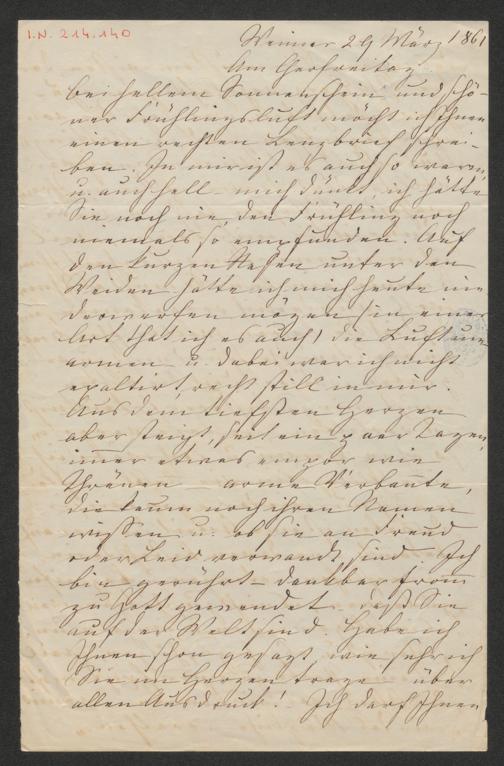 I.N. 214.140
Weimar 29 März 1861
Am Charfreitag
Bei hellem Sonnenschein und schö-
ner Frühlingsluft möcht ich Ihnen
einen rechten Lenzbrief schrei-
ben. In mir ist es auch so warm
u. auch hell – mich dünkt, ich hätte
Sie noch nie, den Frühling noch
niemals so empfunden. Auf
den kurzen Rasen unter den
Weiden hätte ich mich heute nie
derwerfen mögen (in einer
Art that ich es auch) die Luft um
armen u. dabei war ich nicht
exaltirt, recht still in mir.
Aus dem tiefsten Herzen
aber steigt, seit ein paar Tagen,
immer etwas empor wie
Thränen – arme Verbannte,
die kaum noch ihren Namen
wissen u. ob sie an Freud
oder Leid verwandt sind. Ich
bin gerührt – dankbar fromm
zu Gott gewendet daß Sie
auf der Welt sind. Habe ich
Ihnen schon gesagt, wie sehr ich
Sie im Herzen trage – über
allen Ausdruck! – Ich darf Ihnen